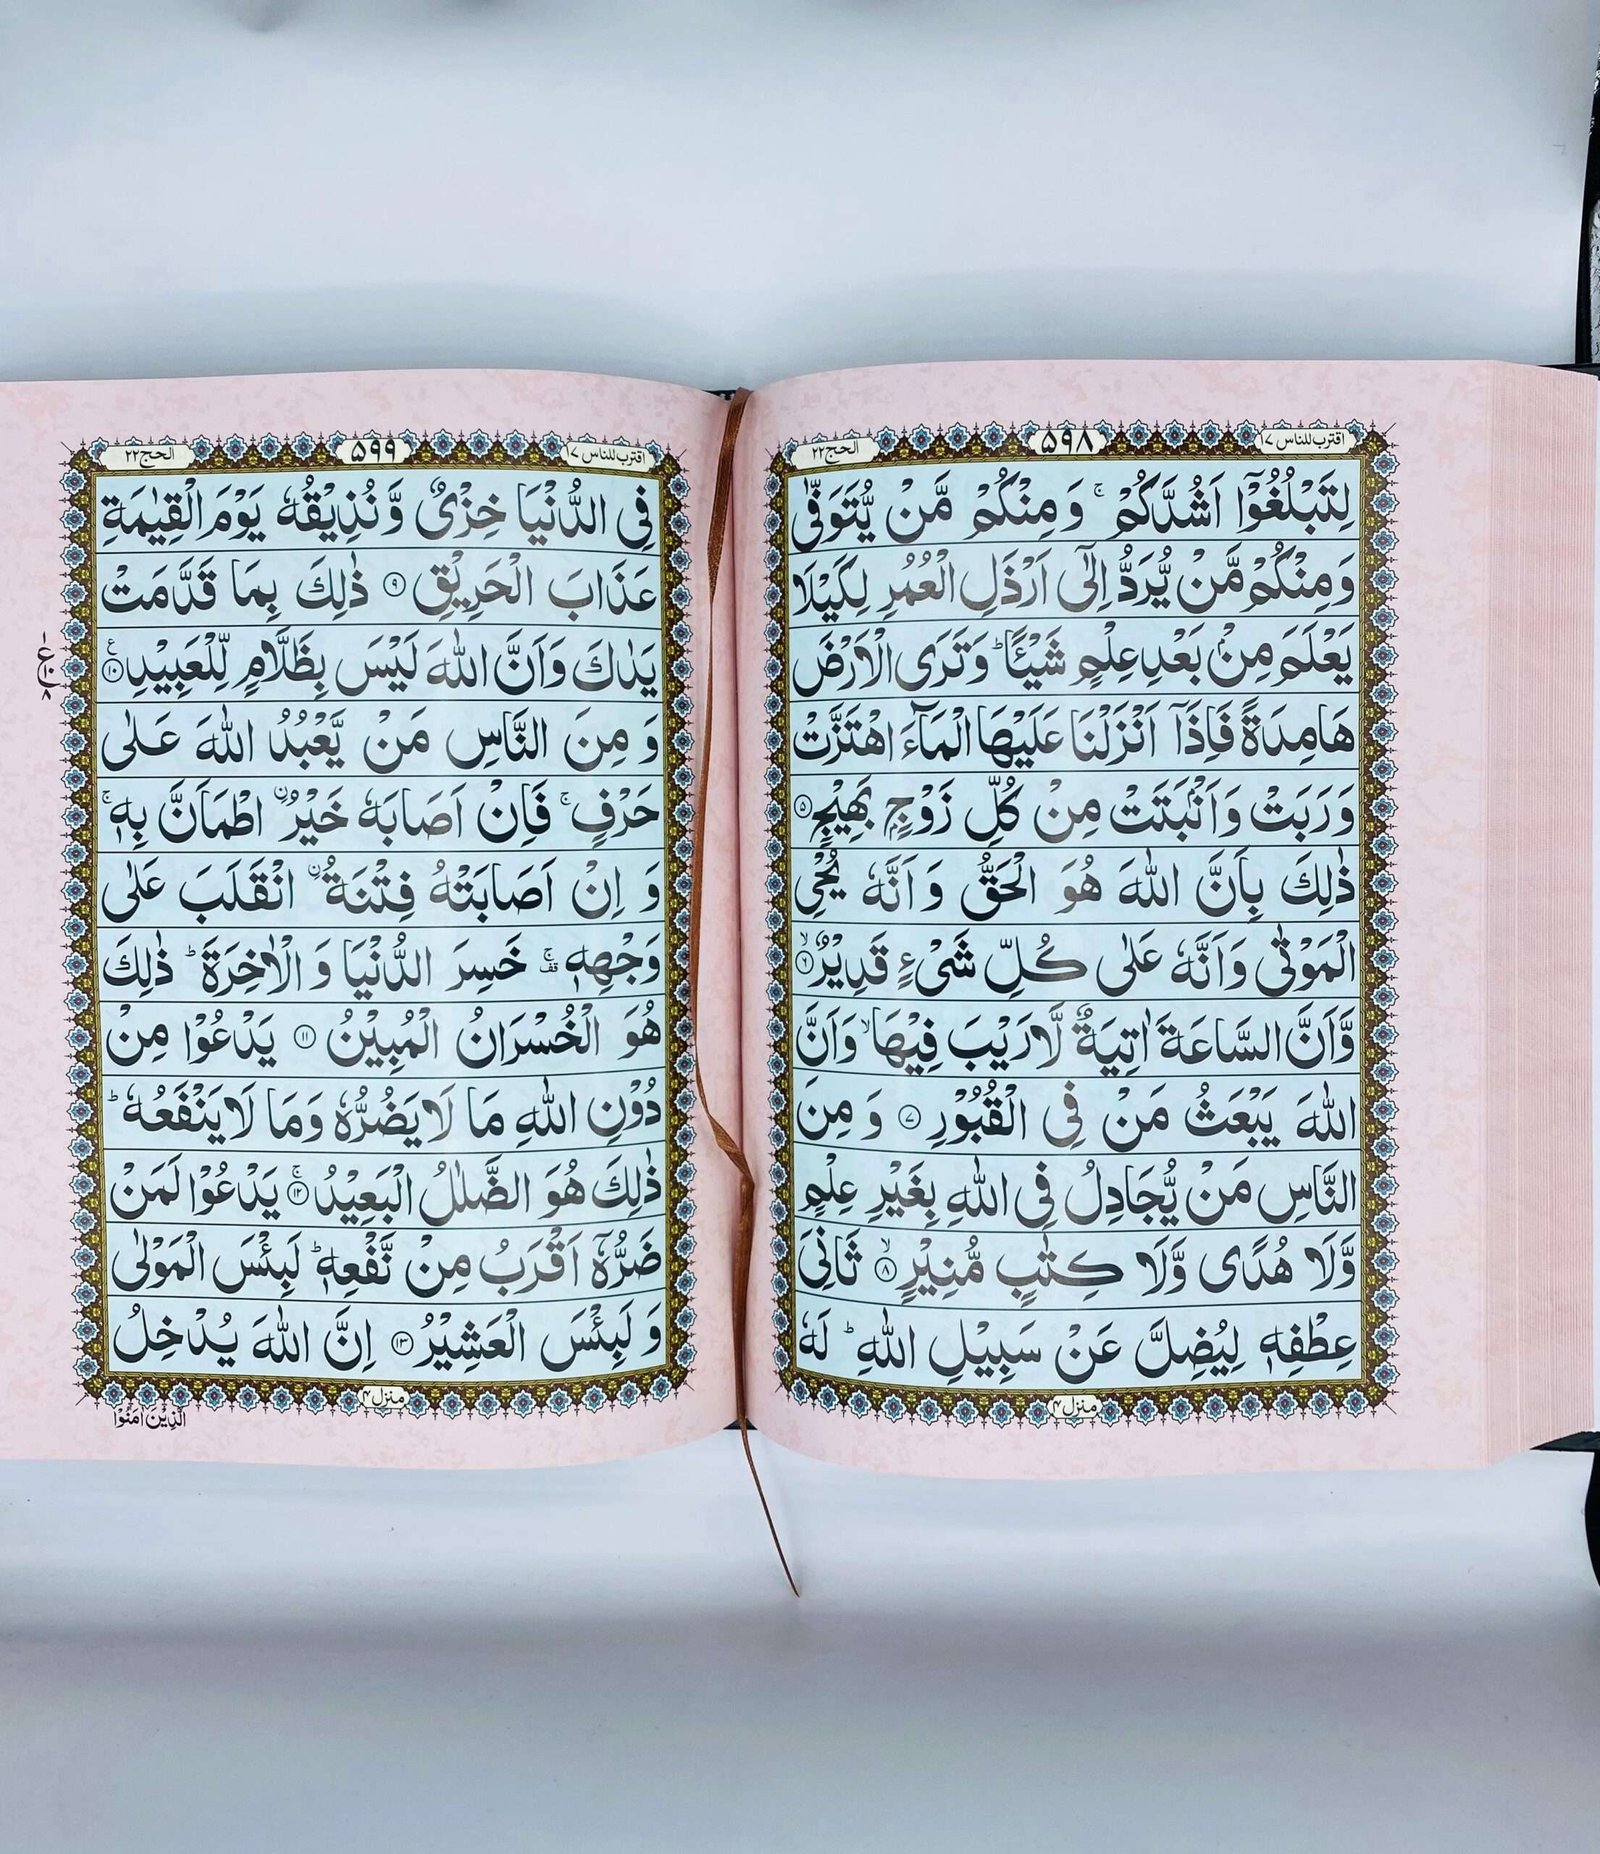 اقترب للناس ١٧
۵۹۸
الحج ٢٢
لِتَبْلُغُوْۤا اَشُدَّكُمْ ۚ وَ مِنْكُمْ مَّنْ يُّتَوَفّٰى
وَ مِنْكُمْ مَّنْ يُّرَدُّ اِلٰۤى اَرْذَلِ الْعُمُرِ لِكَيْلَا
يَعْلَمَ مِنْۢ بَعْدِ عِلْمٍ شَيْـًٔا ؕ وَ تَرَى الْاَرْضَ
هَامِدَةً فَاِذَاۤ اَنْزَلْنَا عَلَيْهَا الْمَآءَ اهْتَزَّتْ
وَ رَبَتْ وَ اَنْۢبَتَتْ مِنْ كُلِّ زَوْجٍۭ بَهِيْجٍ ۵
ذٰلِكَ بِاَنَّ اللّٰهَ هُوَ الْحَقُّ وَ اَنَّهٗ يُحْيِ
الْمَوْتٰى وَ اَنَّهٗ عَلٰى كُلِّ شَيْءٍ قَدِيْرٌ ۙ ۶
وَّ اَنَّ السَّاعَةَ اٰتِيَةٌ لَّا رَيْبَ فِيْهَا ۙ وَ اَنَّ
اللّٰهَ يَبْعَثُ مَنْ فِي الْقُبُوْرِ ۷ وَ مِنَ
النَّاسِ مَنْ يُّجَادِلُ فِي اللّٰهِ بِغَيْرِ عِلْمٍ
وَّ لَا هُدًى وَّ لَا كِتٰبٍ مُّنِيْرٍ ۙ ۸ ثَانِيَ
عِطْفِهٖ لِيُضِلَّ عَنْ سَبِيْلِ اللّٰهِ ؕ لَهٗ
منزل ۴
اقترب للناس ١٧
۵۹۹
الحج ٢٢
فِي الدُّنْيَا خِزْيٌ وَّ نُذِيْقُهٗ يَوْمَ الْقِيٰمَةِ
عَذَابَ الْحَرِيْقِ ۹ ذٰلِكَ بِمَا قَدَّمَتْ
يَدٰكَ وَ اَنَّ اللّٰهَ لَيْسَ بِظَلَّامٍ لِّلْعَبِيْدِ ۱۰
وَ مِنَ النَّاسِ مَنْ يَّعْبُدُ اللّٰهَ عَلٰى
حَرْفٍ ۚ فَاِنْ اَصَابَهٗ خَيْرُ ۟اطْمَاَنَّ بِهٖ ۚ
وَ اِنْ اَصَابَتْهُ فِتْنَةُ ۟انْقَلَبَ عَلٰى
وَجْهِهٖ ۚ قف خَسِرَ الدُّنْيَا وَ الْاٰخِرَةَ ؕ ذٰلِكَ
هُوَ الْخُسْرَانُ الْمُبِيْنُ ۱۱ يَدْعُوْا مِنْ
دُوْنِ اللّٰهِ مَا لَا يَضُرُّهٗ وَ مَا لَا يَنْفَعُهٗ ؕ
ذٰلِكَ هُوَ الضَّلٰلُ الْبَعِيْدُ ۚ ۱۲ يَدْعُوْا لَمَنْ
ضَرُّهٗۤ اَقْرَبُ مِنْ نَّفْعِهٖ ؕ لَبِئْسَ الْمَوْلٰى
وَ لَبِئْسَ الْعَشِيْرُ ۱۳ اِنَّ اللّٰهَ يُدْخِلُ
منزل ۴
الَّذِيْنَ اٰمَنُوْا